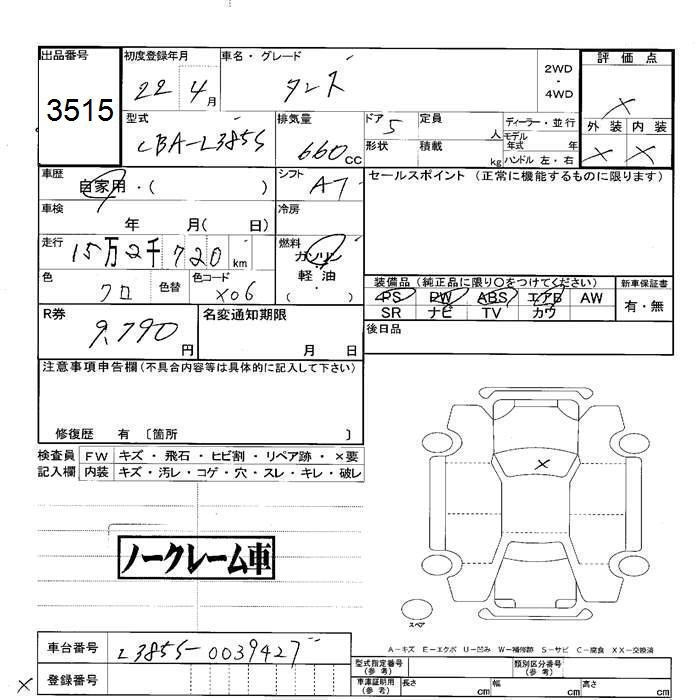 出品番号 初度登録年月 車名・グレード 2WD 評価点
3515 22 4 月 タント ・
4WD ×
型式 排気量 ドア 5 定員 人 ディーラー・並行 外装 内装
CBA-L385S 660 CC 形状 積載 kg モデル年式 年 × ×
ハンドル 左・右
車歴 自家用・( ) シフト AT セールスポイント (正常に機能するものに限ります)
車検 年 月( 日) 冷房
走行 15万2千720 km 燃料 ガソリン
軽油
( )
色 クロ 色替 色コード X06 装備品 (純正品に限り○をつけてください) 新車保証書
PS PW ABS エアB AW 有・無
SR ナビ TV カワ
R券 9,790 円 名変通知期限 月 日 後日品
注意事項申告欄 (不具合内容等は具体的に記入して下さい)
修復歴 有 〔箇所 〕
検査員 FW キズ・飛石・ヒビ割・リペア跡・×要
記入欄 内装 キズ・汚レ・コゲ・穴・スレ・キレ・破レ
×
ノークレーム車
スペア
A-キズ E-エクボ U-凹み W-補修跡 S-サビ C-腐食 XX-交換済
車台番号 L385S-0039427
× 登録番号
型式指定番号 (参考) 類別区分番号 (参考)
車庫証明用 (参考) 長さ cm 幅 cm 高さ cm